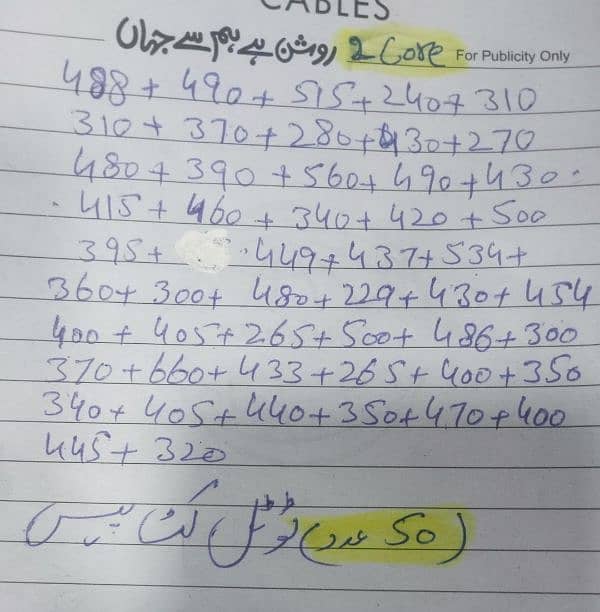 CABLES
روشن ہے ہم سے جہاں 2 Core For Publicity Only
488 + 490 + 515 + 240 + 310
310 + 370 + 280 + 430 + 270
480 + 390 + 560 + 490 + 430
415 + 460 + 340 + 420 + 500
395 + 449 + 437 + 534 +
360 + 300 + 480 + 229 + 430 + 454
400 + 405 + 265 + 500 + 486 + 300
370 + 660 + 433 + 265 + 400 + 350
340 + 405 + 440 + 350 + 470 + 400
445 + 320
ٹوٹل کٹ پیس (50 عدد)